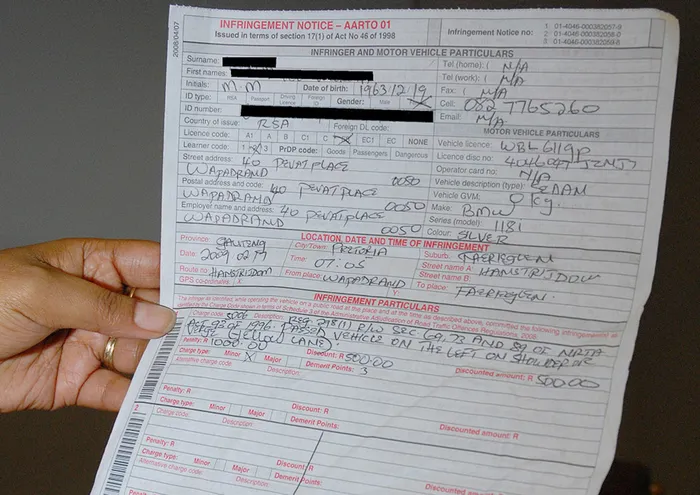 2008/04/07
INFRINGEMENT NOTICE – AARTO 01
Issued in terms of section 17(1) of Act No 46 of 1998
Infringement Notice no:
1 01-4046-000382057-9
2 01-4046-000382058-0
3 01-4046-000382059-8
INFRINGER AND MOTOR VEHICLE PARTICULARS
Surname:
Tel (home): ( N/A
First names:
Tel (work): ( N/A
Initials: M M Date of birth: 1963/12/19
Fax: ( N/A
ID type: RSA Passport Driving Licence Foreign ID Gender: Male
Cell: 082 7765260
ID number:
Email: N/A
Country of issue: RSA Foreign DL code:
MOTOR VEHICLE PARTICULARS
Licence code: A1 A B C1 C EC1 EC NONE
Vehicle licence: WBL 611gp
Learner code: 1 3 PrDP code: Goods Passengers Dangerous
Licence disc no:
Street address: 40 PEVAT PLACE
Operator card no: N/A
WAPADRAND 0050
Vehicle description (type): SEDAN
Postal address and code: 40 PEVAT PLACE
Vehicle GVM: 0 kg.
WAPADRAND 0050
Make: BMW
Employer name and address: 40 PEVAT PLACE
Series (model): 118i
WAPADRAND 0050
Colour: SILVER
LOCATION, DATE AND TIME OF INFRINGEMENT
Province: GAUTENG City/Town: PRETORIA Suburb: FAERIEGLEN
Date: 2009 02 17 Time: 07:05 Street name A: HANSTRIJDOM
Street name B:
Route to: HANSTRIJDOM From place: WAPADRAND To place: FAERIEGLEN.
GPS co-ordinates X: Y:
INFRINGEMENT PARTICULARS
Charge code: 5006 Description: REG 298(1) R/W SEC 69, 73 AND 89 OF NRTA
ACT 93 OF 1996. PASSED VEHICLE ON THE LEFT ON SHOULDER OF
(YELLOW LANE).
Penalty: R 1000.00 Discount: R 500.00 Discounted amount: R 500.00
Charge type: Minor X Major Demerit Points: 3
Alternative charge code: Description:
Penalty: R Discount: R Discounted amount: R
Charge type: Minor Major Demerit Points:
2
Charge code: Description:
Penalty: R Discount: R Discounted amount: R
Charge type: Minor Major Demerit Points:
Alternative charge code: Description:
Penalty: R Discount: R Discounted amount: R